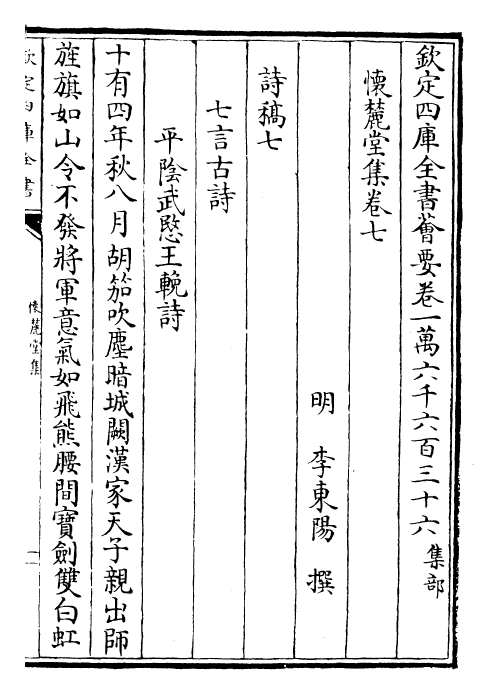 欽定四庫全書薈要卷一萬六千六百三十六 集部
懷麓堂集卷七
明 李東陽 撰
詩稿七
七言古詩
平陰武愍王輓詩
十有四年秋八月胡笳吹塵暗城闕漢家天子親出師
旌旗如山令不發將軍意氣如飛熊腰間寶劍雙白虹
欽定四庫全書
懷麓堂集
一